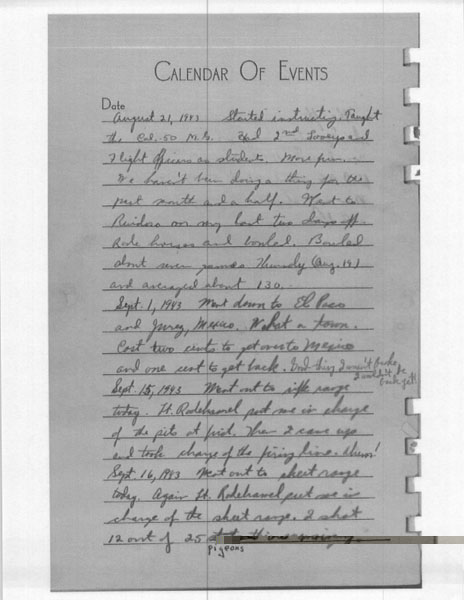 CALENDAR OF EVENTS
Date
August 21, 1943 Started instructing. Taught
the Cal. 50 M.G. Had 2nd Looeys and
Flight Officers as students. More fun.
We haven't been doing a thing for the
past month and a half. Went to
Ruidoso on my last two days off.
Rode horses and bowled. Bowled
about seven games Thursday (Aug. 19)
and averaged about 130.
Sept. 1, 1943 Went down to El Paso
and Jurez, Mexico. What a town.
Cost two cents to get over to Mexico
and one cent to get back. thing I wasn't broke
I wouldn't be back yet!
Sept. 15, 1943 Went out to rifle range
today. Lt. Rodehamel put me in charge
of the pits at first. Then I came up
and took charge of the firing line.
Sept. 16, 1943 Went out to skeet range
today. Again Lt. Rodehamel put me in
charge of the skeet range. I shot
12 out of 25
pigeons